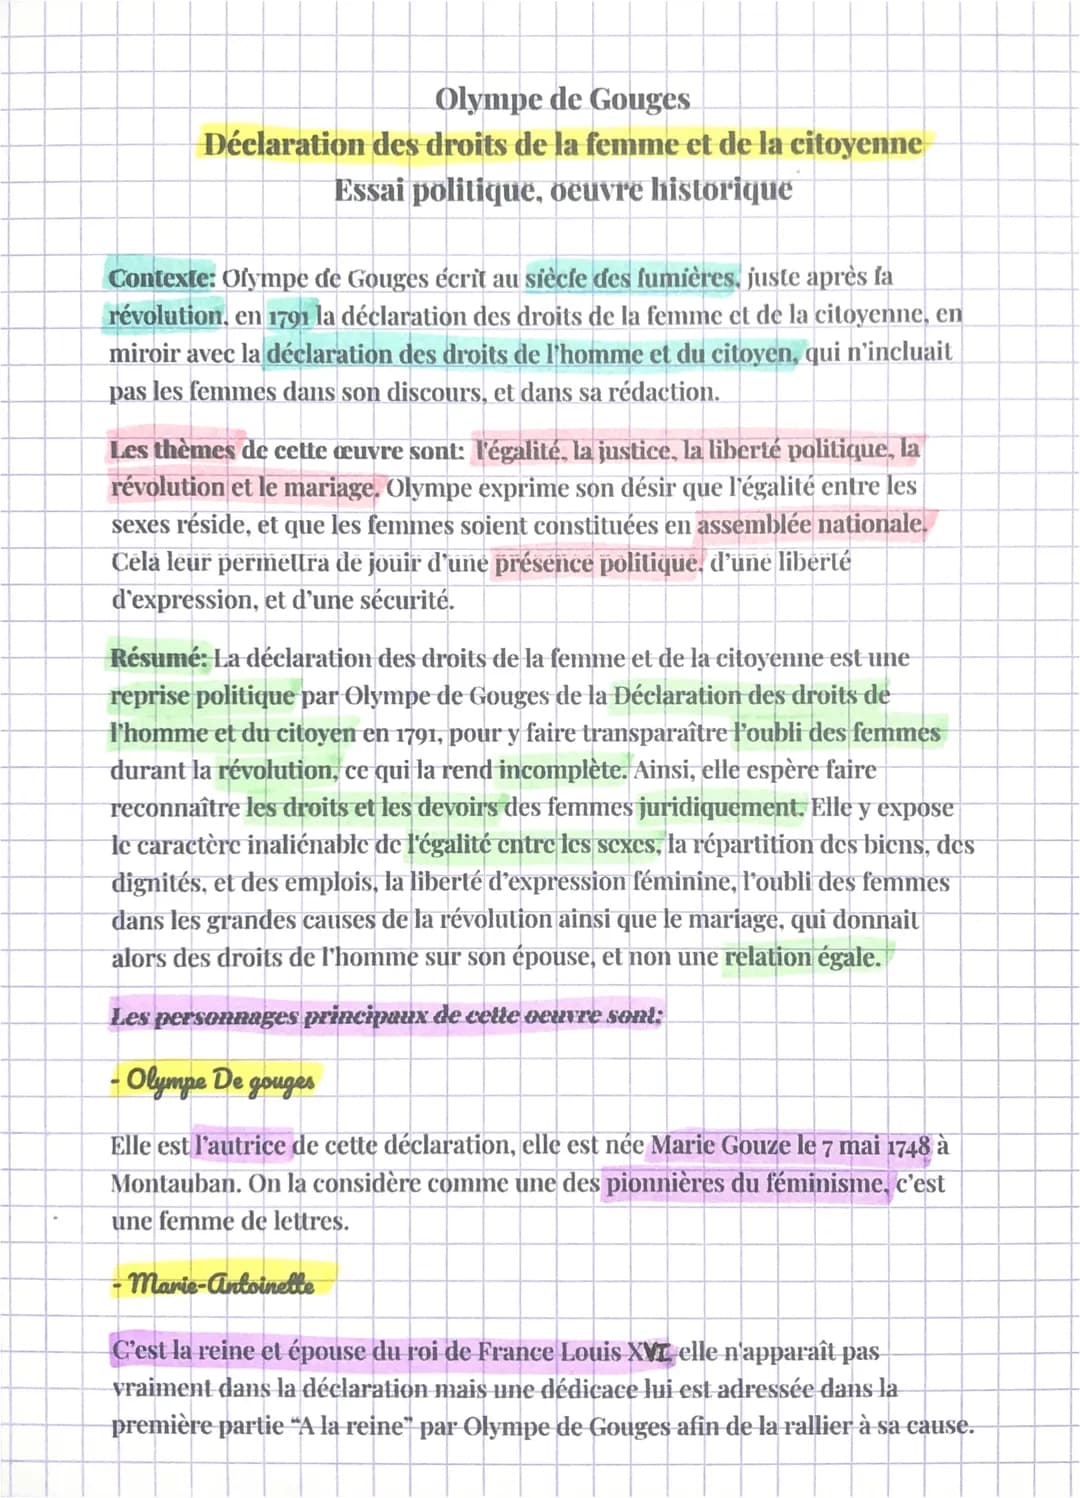 Olympe de Gouges
Déclaration des droits de la femme et de la citoyenne
Essai politique, oeuvre historique
Contexte: Olympe de Gouges écrit au siècle des lumières, juste après la
révolution, en 1791 la déclaration des droits de la femme et de la citoyenne, en
miroir avec la déclaration des droits de l'homme et du citoyen, qui n'incluait
pas les femmes dans son discours, et dans sa rédaction.
Les thèmes de cette œuvre sont: l'égalité, la justice, la liberté politique, la
révolution et le mariage. Olympe exprime son désir que l'égalité entre les
sexes réside, et que les femmes soient constituées en assemblée nationale.
Cela leur permettra de jouir d'une présence politique, d'une liberté
d'expression, et d'une sécurité.
Résumé: La déclaration des droits de la femme et de la citoyenne est une
reprise politique par Olympe de Gouges de la Déclaration des droits de
l'homme et du citoyen en 1791, pour y faire transparaître l'oubli des femmes
durant la révolution, ce qui la rend incomplète. Ainsi, elle espère faire
reconnaître les droits et les devoirs des femmes juridiquement. Elle y expose
le caractère inaliénable de l'égalité entre les sexes, la répartition des biens, des
dignités, et des emplois, la liberté d'expression féminine, l'oubli des femmes
dans les grandes causes de la révolution ainsi que le mariage, qui donnait
alors des droits de l'homme sur son épouse, et non une relation égale.
Les personnages principaux de cette oeuvre sont:
- Olympe De gouges
Elle est l'autrice de cette déclaration, elle est née Marie Gouze le 7 mai 1748 à
Montauban. On la considère comme une des pionnières du féminisme, c'est
une femme de lettres.
- Marie-Antoinette
C'est la reine et épouse du roi de France Louis XVI elle n'apparaît pas
vraiment dans la déclaration mais une dédicace lui est adressée dans la
première partie “A la reine” par Olympe de Gouges afin de la rallier à sa cause.